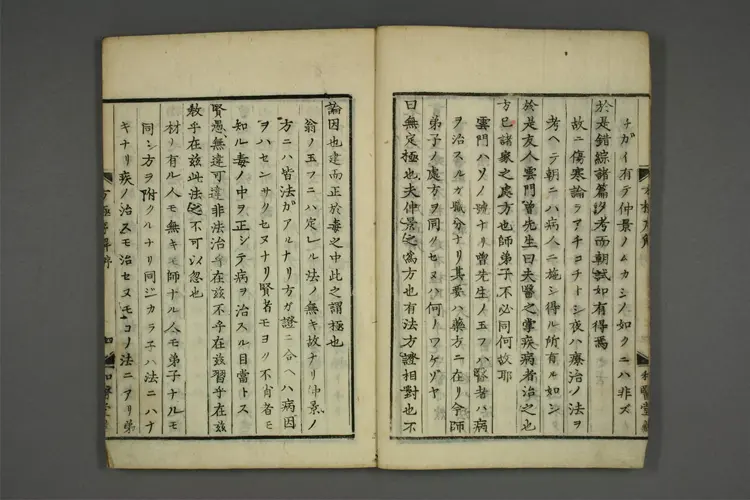 チガイ有テ仲景ノムカシノ如クニハ非ズ
於是錯綜諸篇抄考而朝試如有得焉
故ニ傷寒論ヲアチコチトシ夜ハ療治ノ法ヲ
考ヘテ朝ニハ病人ニ施シ得ル所有ル如シ
於是友人雲門曽先生曰夫醫之掌疾病者治之也
方已諸家之處方也師弟子不必同何故耶
雲門ハソノ號ナリ曽先生ノ玉フハ賢者ハ病
ヲ治スルガ職分ナリ其要ハ藥方ニ在リ今師
弟子ノ處方ヲ同クセヌハ何トワケゾヤ
曰無定極也夫仲景之爲方也有法方證相對也不
論因也建而正於毒之中此之謂極也
翁ノ玉フニハ定レル法ノ無キ故ナリ仲景ノ
方ニハ皆法ガアルナリ方ガ證ニ合ヘハ病因
ヲハセンサクセヌナリ賢者モヨリ不肖者モ
知ル毒ノ中ヲ正シテ病ヲ治スル目當トス
賢愚無違可違非法治乎在茲不乎在茲習乎在茲
教乎在茲此法之不可以忽也
材リ有ル人モ無キモ師ナル人モ弟子ナルモ
同シ方ヲ附クルナリ同シカラ子ハ法ニハナ
キナリ疾ノ治スモ治セヌモコノ法ニアリ弟